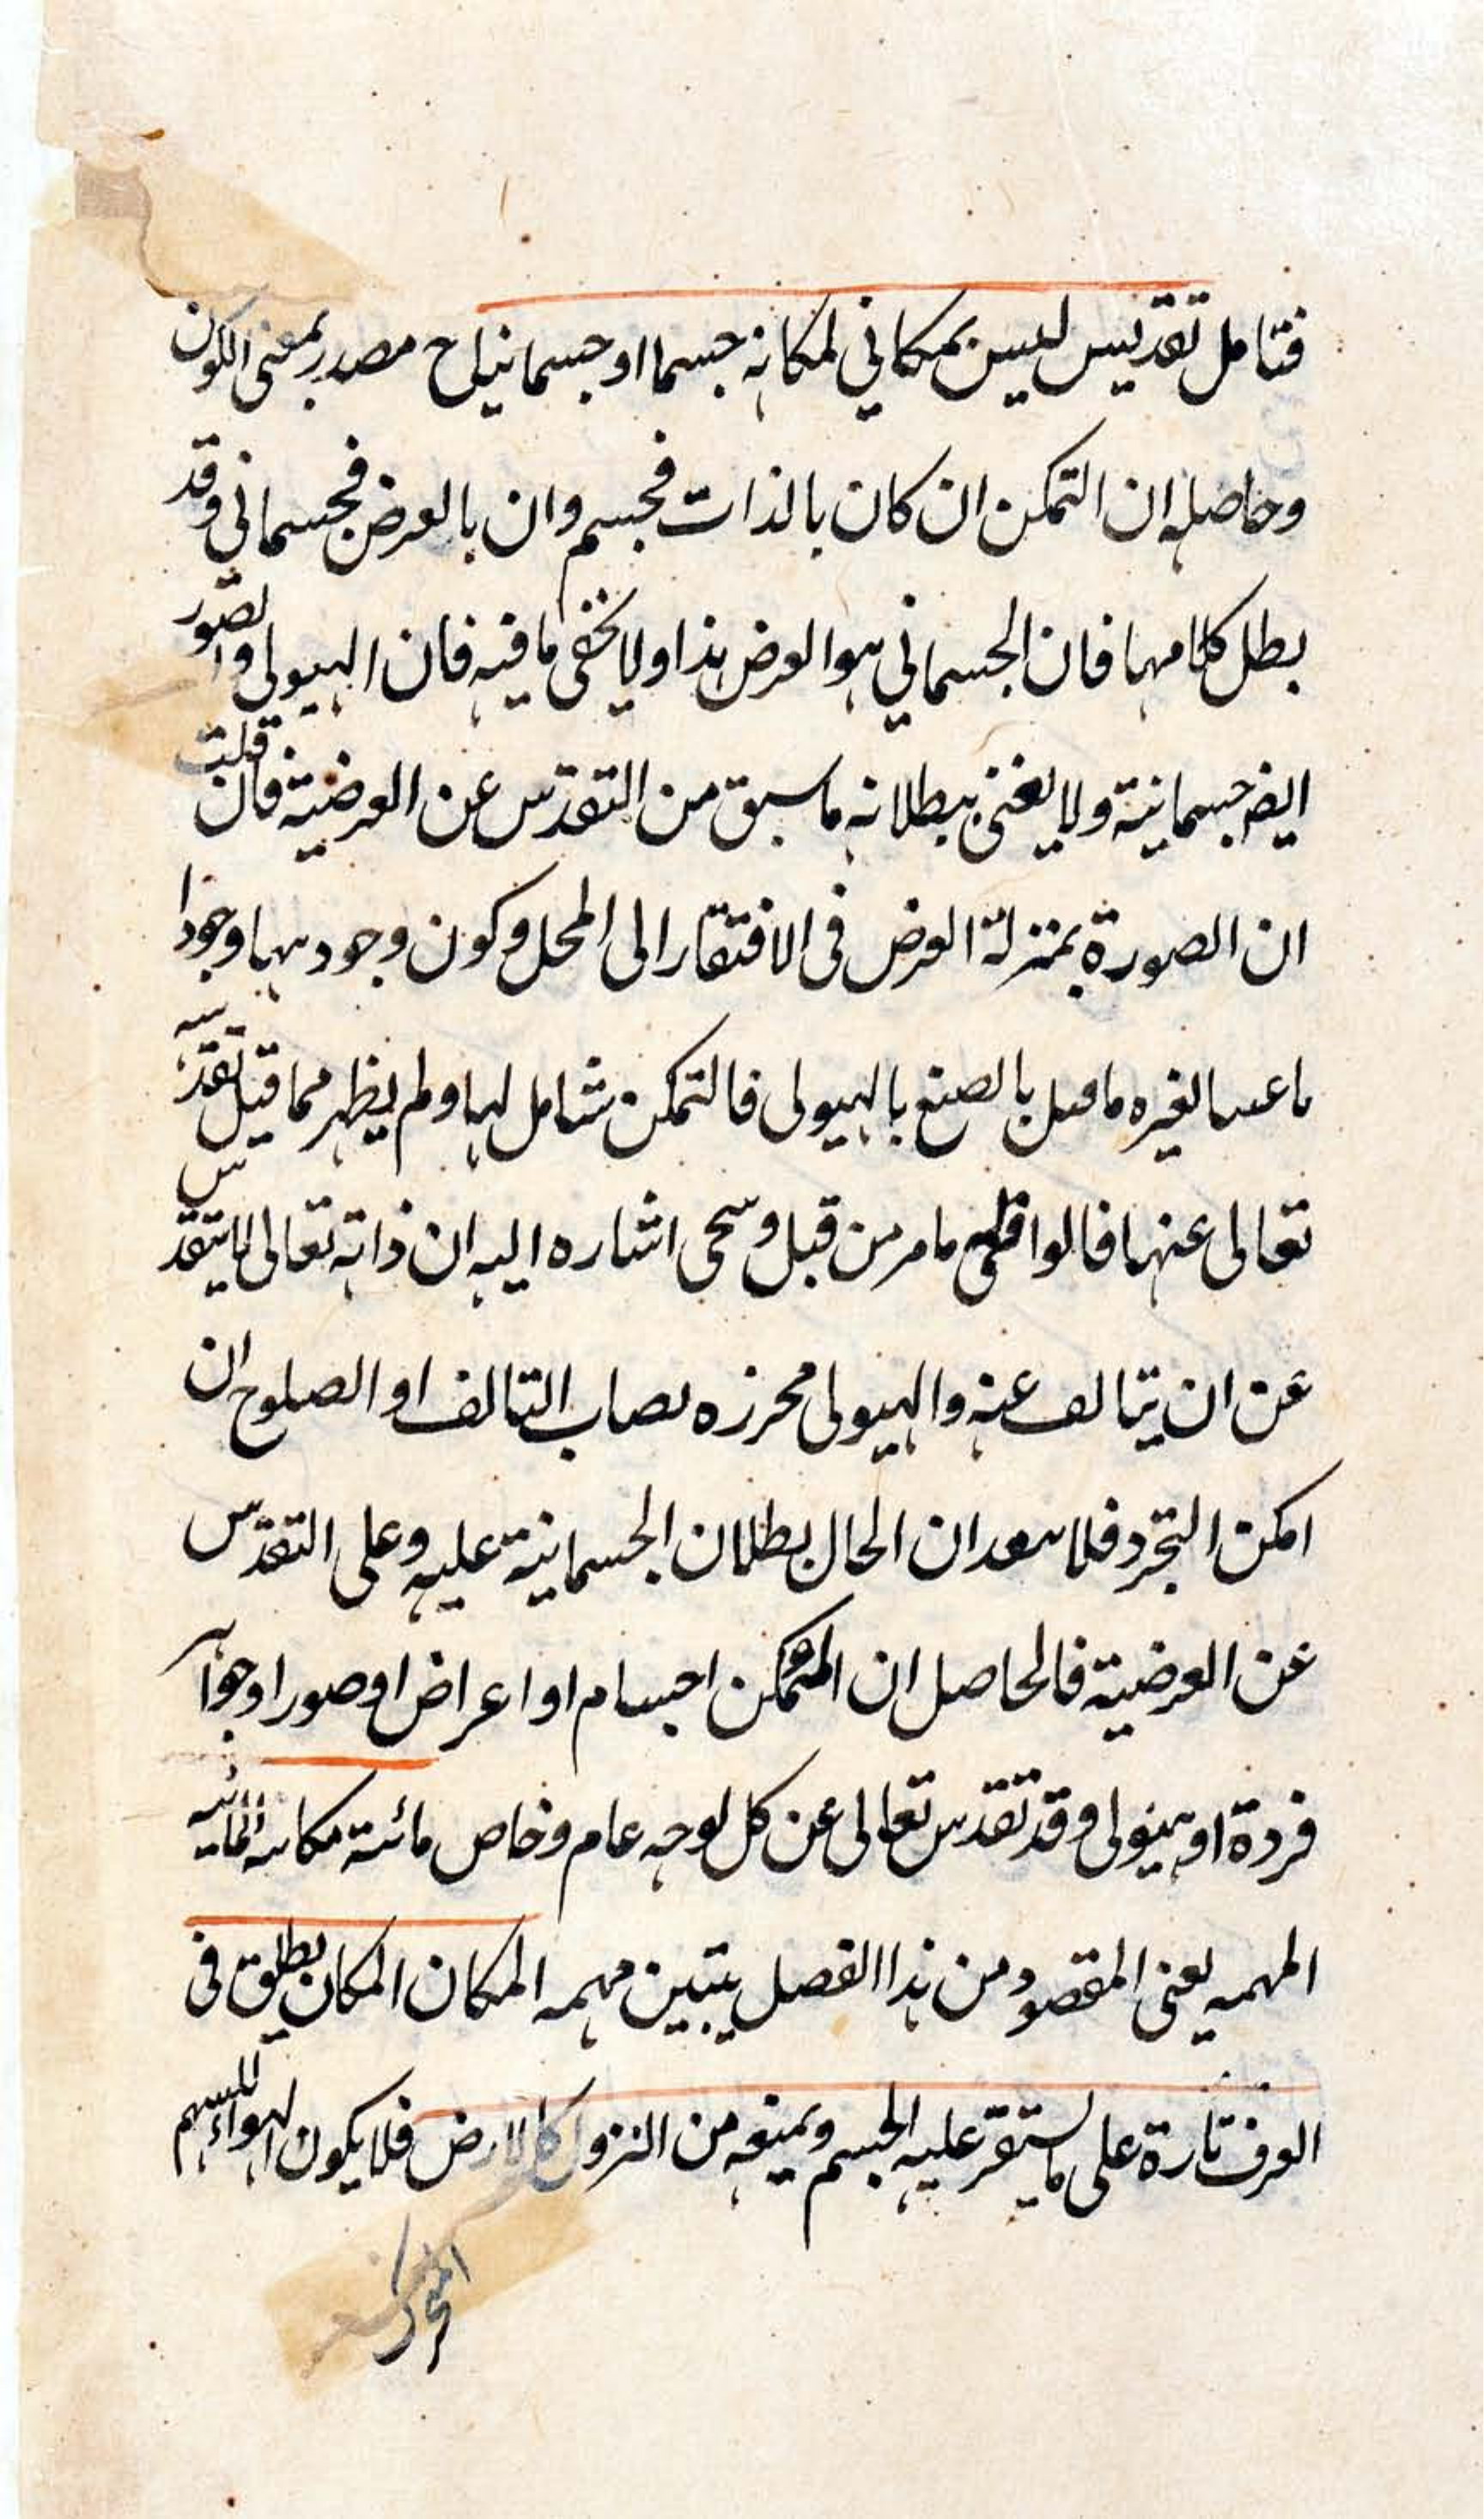 فتامل تقديس ليس بمكاني لمكانه جسما او جسمانيا ح مصدر بمعنى الكون
وحاصله ان التمكن ان كان بالذات فجسم وان بالعرض فجسماني وقد
بطل كلامهما فان الجسماني هو العرض هذا ولا يخفى ما فيه فان الهيولى والصور
ايضا جسمانية ولا يغني ببطلانه ما سبق من التقدس عن العرضية فان قلت
ان الصورة بمنزلة العرض فى الافتقار الى المحل وكون وجودهما وجودا
لغيره بالهيولى فالتمكن شامل لهما ولم يظهر مما قيل تقدسه
تعالى عنهما مامر من قبل اشاره اليه ان ذاته تعالى يتقدس
عن ان يتالف عنه والهيولى محرزه نصاب التالف او الصلوح ان
امكن التجرد فلا ان الحال بطلان الجسمانية عليه وعلى التقدس
عن العرضية فالحاصل ان المتمكن اجسام او اعراض او صور او جواهر
فردة او هيولى وقد تقدس تعالى عن كل لوجه عام وخاص
المهمه يعنى المقصود من هذا الفصل يتبين مهمه المكان المكان يطلق فى
العرف تارة على ما يستقر عليه الجسم ويمنعه من النزول كالارض فلا يكون الهواء